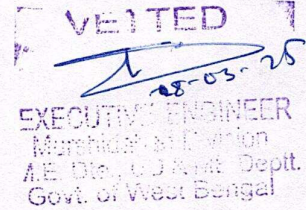 VETTED
08-03-25
EXECUTIVE ENGINEER
Murshidabad Division
A.E. Dte., Deptt.
Govt. of West Bengal